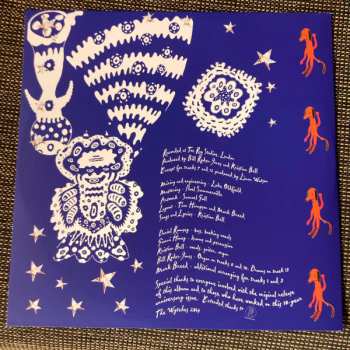 Recorded at Toe Rag Studios, London
Produced by Bill Ryder-Jones and Kristian Bell
Except for tracks 2 and 10 produced by Liam Watson
Mixing and engineering - Luke Oldfield
Mastering - Noel Summerville
Artwork - Samuel Gull
Layout - Tim Hampson and Mark Breed
Songs and Lyrics - Kristian Bell
Daniel Rumsey - bass, backing vocals
Gianni Honey - drums and percussion
Kristian Bell - vocals, guitars, organ
Bill Ryder-Jones - Organ on tracks and 10. Drums on track 13
Mark Breed - additional arranging for tracks 2 and 3
Special thanks to everyone involved with the original release
of this album and to those who have worked on this 10-year
anniversary issue. Extended thanks to
The Wytches 2024